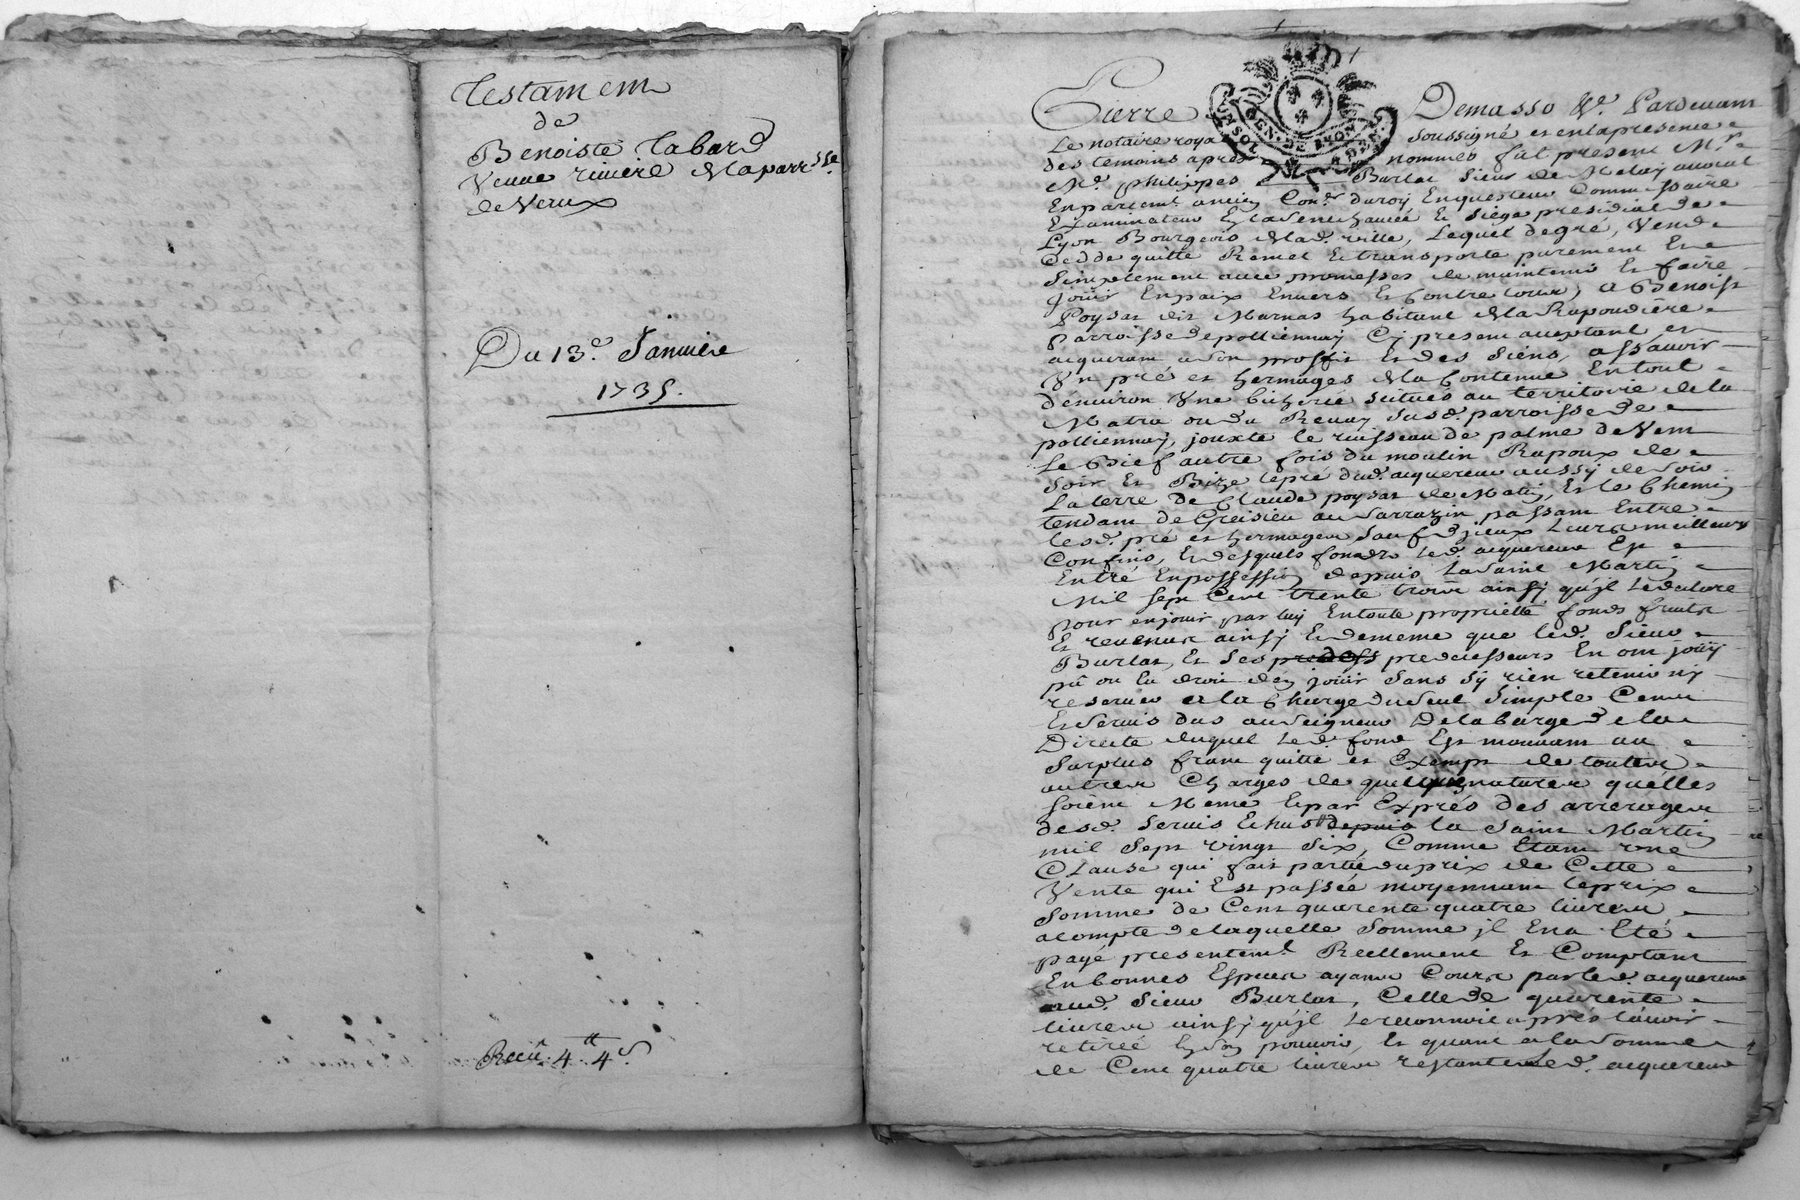 Testament
de
Benoiste Tabard
Veuve riviere de la parr.sse
de Vaux
Du 13.e Januiere
1735.
Receu 4tt 4s
GEN. DE LYON
Pierre Demasso &c. Pardevant
Le notaire royal soussigné et en la presence
des temoins apres nommés fut present Mr.
Me. philippes Burlat Sieur de Melay auocat
En parlement ancien Coner. du roy Enquesteur Commissaire
Examinateur En la Senechaucée et siege presidial de
Lyon Bourgeois de lad. ville, Lequel de gré, Vend
Cedde quitte Remet Et transporte purement Et
Simplement auec promesses de maintenir Et faire
jouir En paix Enuers Et Contre tous, a Benoist
Poysat dit Marnas habitant de la Rapoudière
Parroisse de pollionnay Cy present acceptant et
acquerant a son proffit Et des Siens, assauoir
Vn pré et hermages de la Contenue En tout
d'enuiron Vne bicherée scitués au territoire de la
Matra ou du Reuay susd. parroisse de
pollionnay, jouxte le ruisseau de palme de Vent
Le Bief autre fois du moulin Rapoux de
soir Et Bize le pré dud. acquereur aussy de soir
La terre de Claude poysat de Matin, Et le Chemin
tendant de Greisieu au Sarrazin passant Entre
lesd. pré et hermages sauf d'jceux Leurs meilleurs
Confins, Et desquels fonds led. acquereur Est
Entré En possession depuis la Saint Martin
Mil sept Cent trente trois ainsy qu'jl le declare
pour en jouir par luy En toute proprietté fonds fruits
Et reuenus ainsy Et de meme que led. Sieur
Burlat, Et ses predess predecesseurs En ont jouy
pû ou eu droit d'en jouir sans sy rien retenir ny
reseruer a la Charge du seul Simple Cens
Et seruis dus au seigneur De la barge de la
Directe duquel led. fond Est mouuant au
surplus franc quitte et Exempt de toutes
autres Charges de quelques natures qu'elles
soient Meme Et par Exprés des arrerages
desd. seruis Echus depuis la Saint Martin
mil sept vingt six, Comme Etant vne
Clause qui fait partie du prix de Cette
Vente qui Est passée moyennant le prix
Somme de Cent quarente quatre liures,
a compte de laquelle somme jl En a Eté
payé presentemt. Reellement Et Comptant
En bonnes Especes ayant Cours par led. acquereur
aud. Sieur Burlat, Celle de quarente
liures ainsy qu'jl le reconnoit apres l'auoir
retirée En son pouuoir, Et quant a la somme
de Cent quatre liures restante led. acquereur